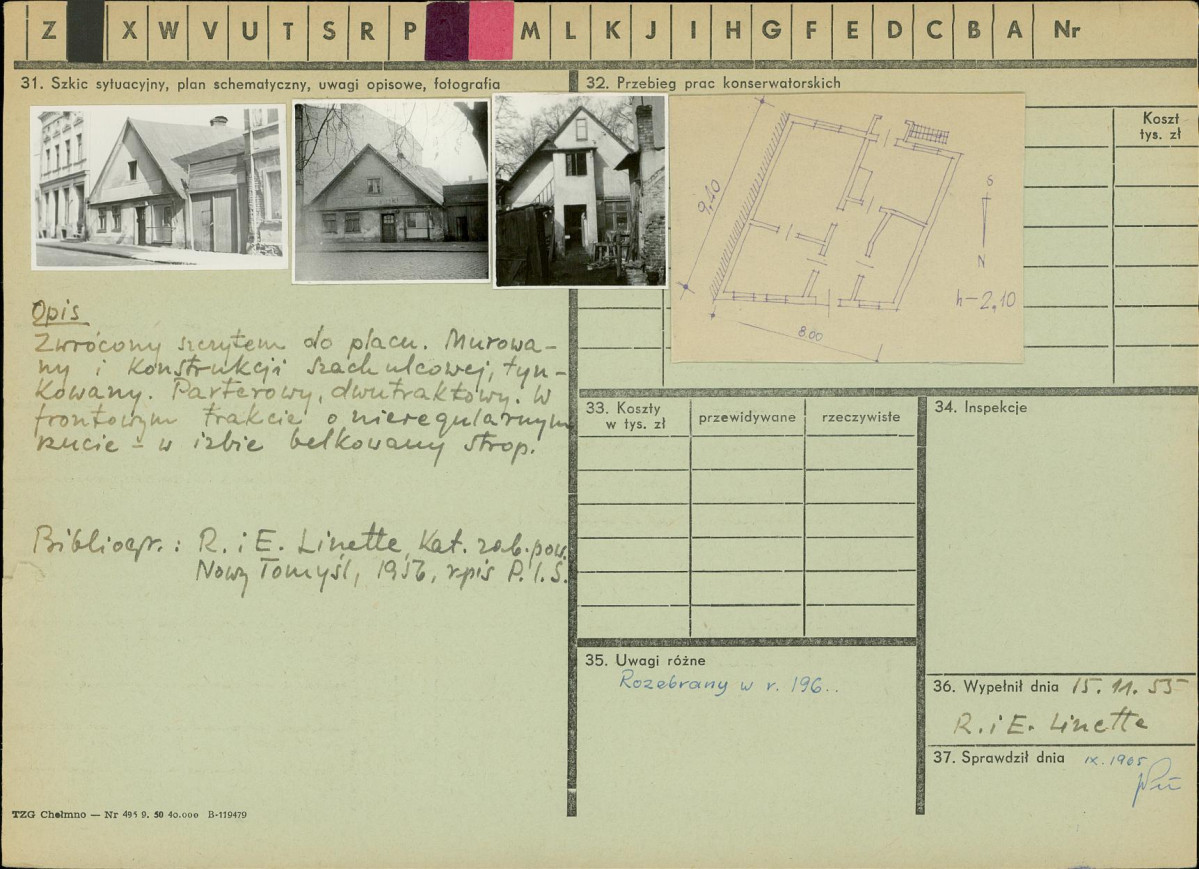 Z X W V U T S R P M L K J I H G F E D C B A Nr
31. Szkic sytuacyjny, plan schematyczny, uwagi opisowe, fotografia
32. Przebieg prac konserwatorskich
Koszt
tys. zł
9,40
8.00
S
N
h-2,10
Opis
Zwrócony szczytem do placu. Murowa-
ny i konstrukcji szachulcowej, tyn-
kowany. Parterowy, dwutraktowy. W
frontowym trakcie o nieregularnym
rzucie – w izbie belkowany strop.
Bibliogr.: R. i E. Linette, Kat. zab. pow.
Nowy Tomyśl, 1956, rpis P.I.S.
33. Koszty
w tys. zł
przewidywane
rzeczywiste
34. Inspekcje
35. Uwagi różne
Rozebrany w r. 196..
36. Wypełnił dnia 15. 11. 55
R. i E. Linette
37. Sprawdził dnia IX. 1965
TZG Chełmno — Nr 495 9. 50 40.000 B-119479